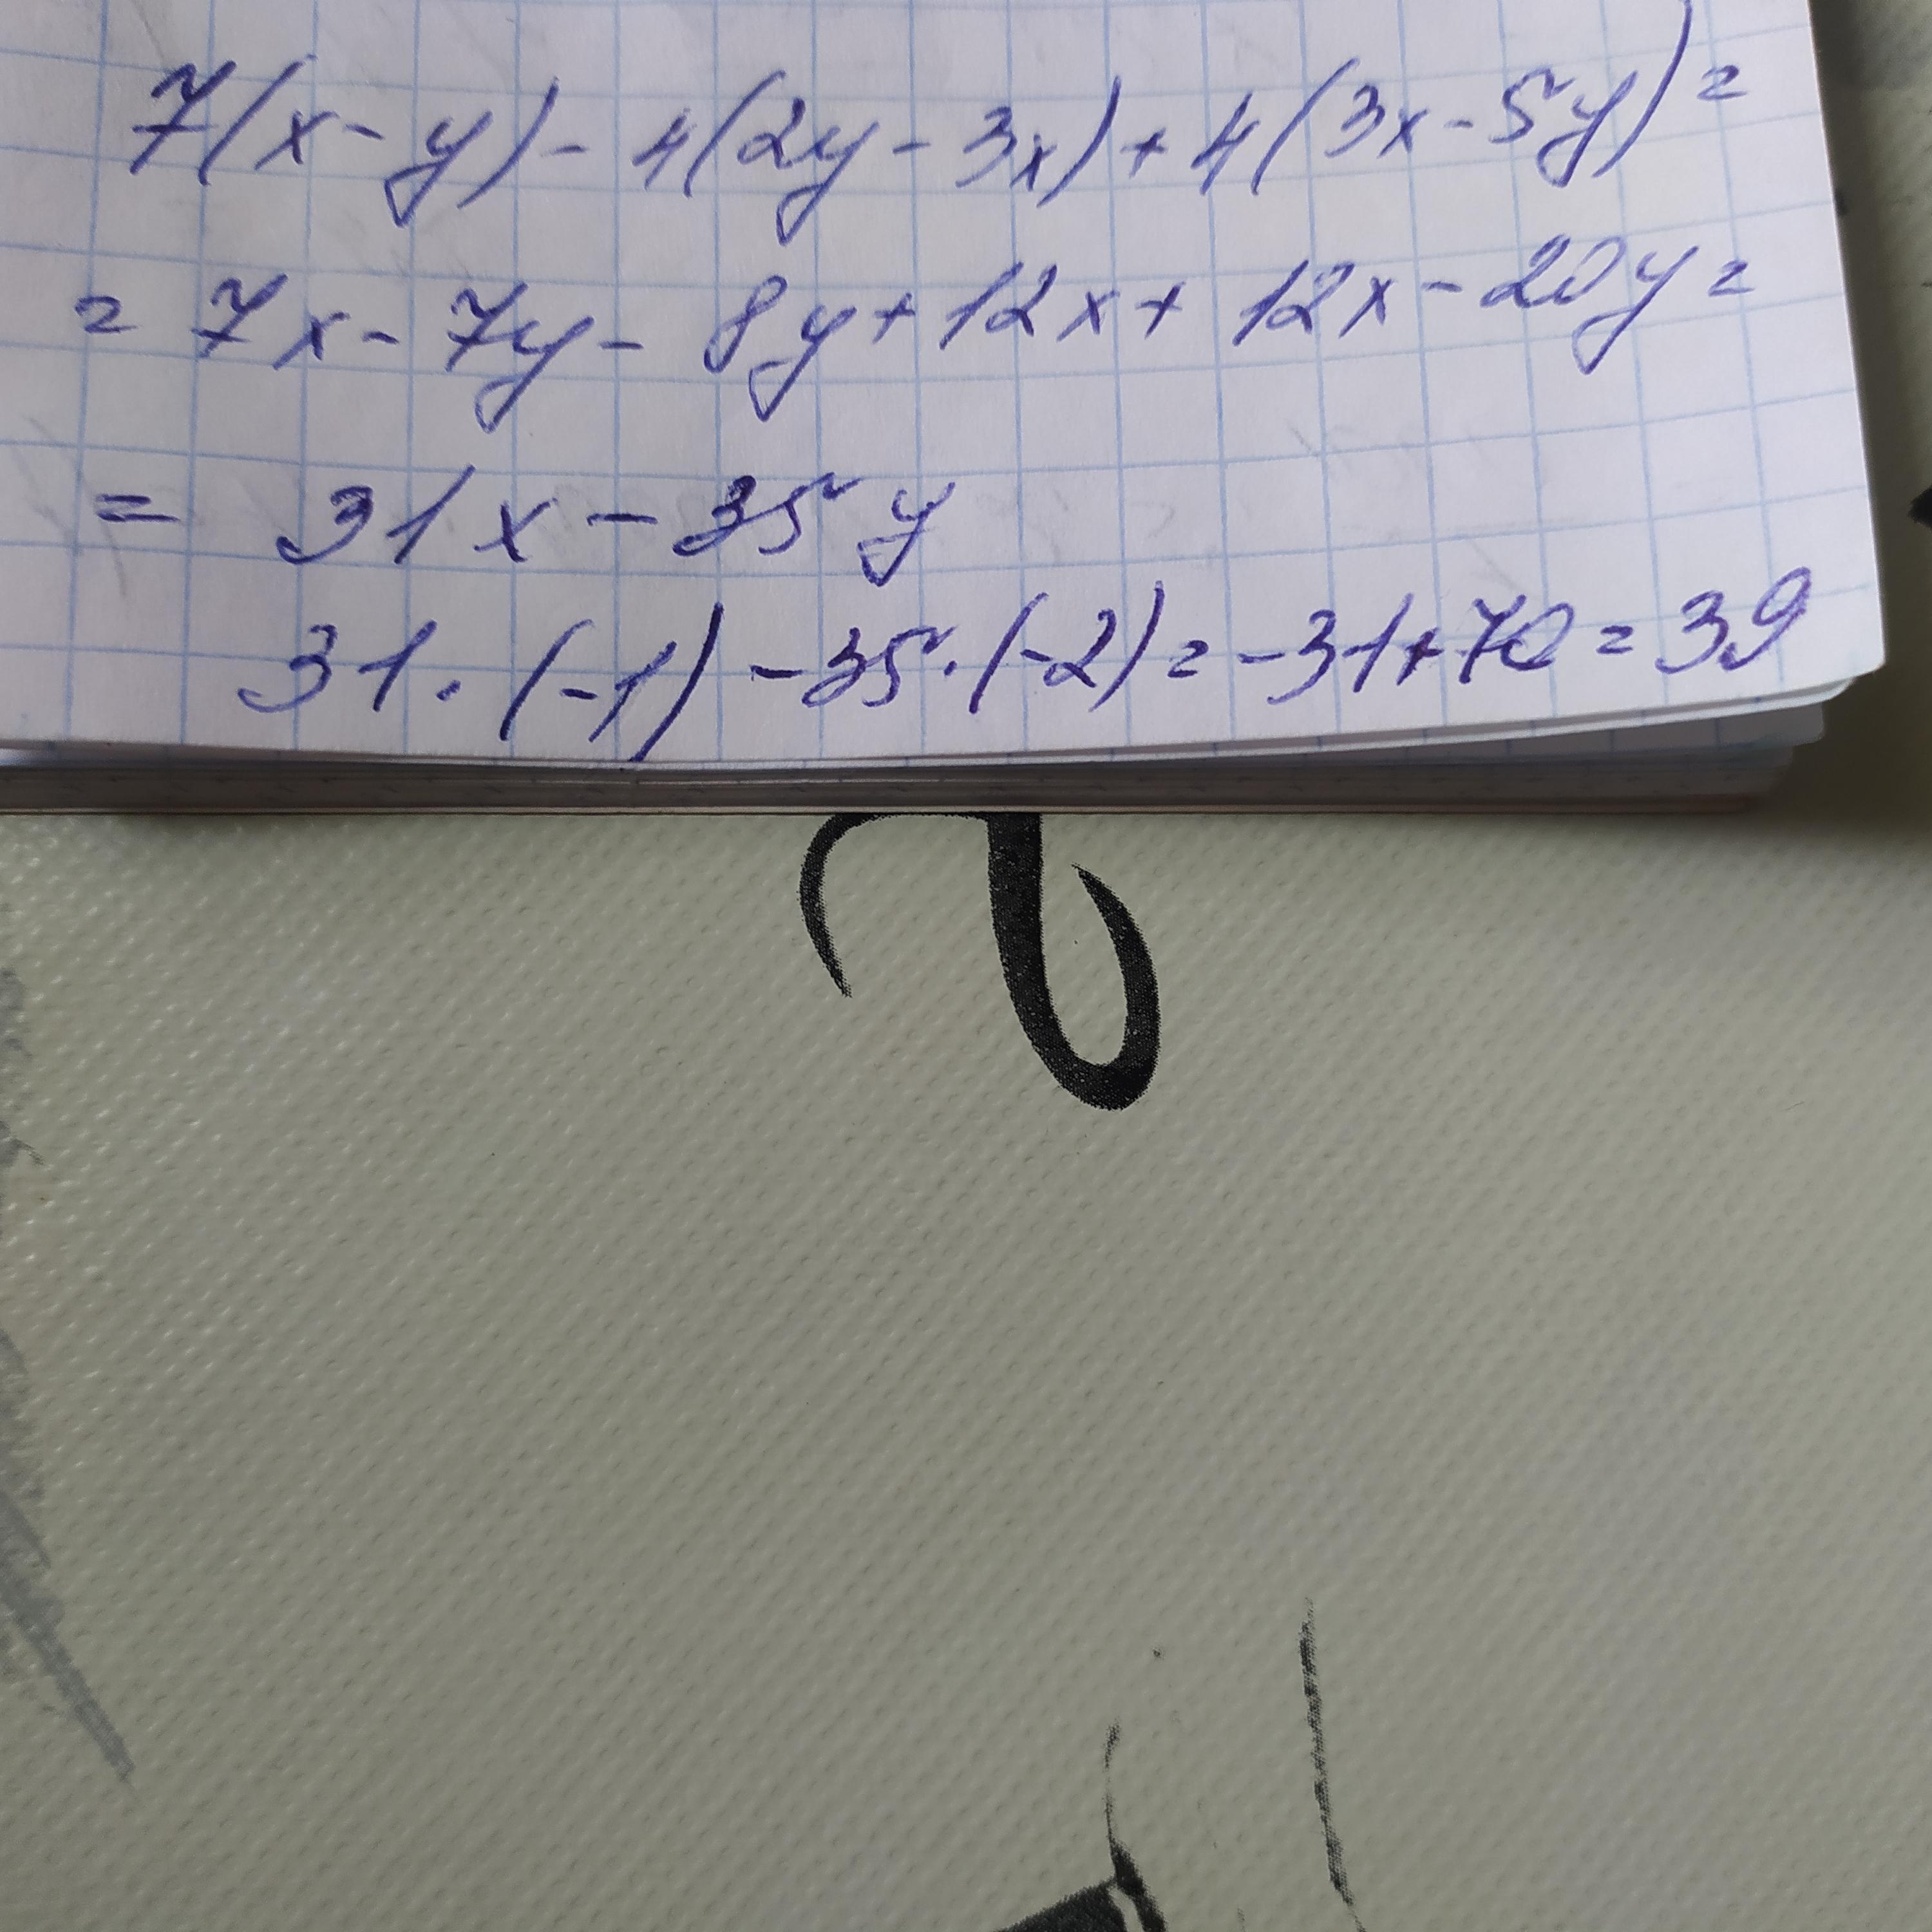 7(x-y)-4(2y-3x)+4(3x-5y)=
=7x-7y-8y+12x+12x-20y=
=31x-35y
31·(-1)-35·(-2)=-31+70=39